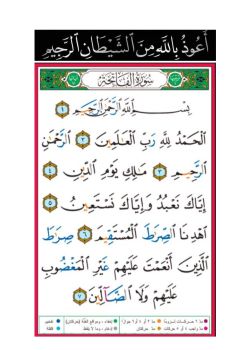 أَعُوذُ بِاللَّهِ مِنَ الشَّيْطَانِ الرَّجِيمِ
سُورَةُ الْفَاتِحَةِ
بِسْمِ اللَّهِ الرَّحْمَٰنِ الرَّحِيمِ ١
الْحَمْدُ لِلَّهِ رَبِّ الْعَالَمِينَ ٢ الرَّحْمَٰنِ
الرَّحِيمِ ٣ مَالِكِ يَوْمِ الدِّينِ ٤
إِيَّاكَ نَعْبُدُ وَإِيَّاكَ نَسْتَعِينُ ٥
اهْدِنَا الصِّرَاطَ الْمُسْتَقِيمَ ٦ صِرَاطَ
الَّذِينَ أَنْعَمْتَ عَلَيْهِمْ غَيْرِ الْمَغْضُوبِ
عَلَيْهِمْ وَلَا الضَّالِّينَ ٧